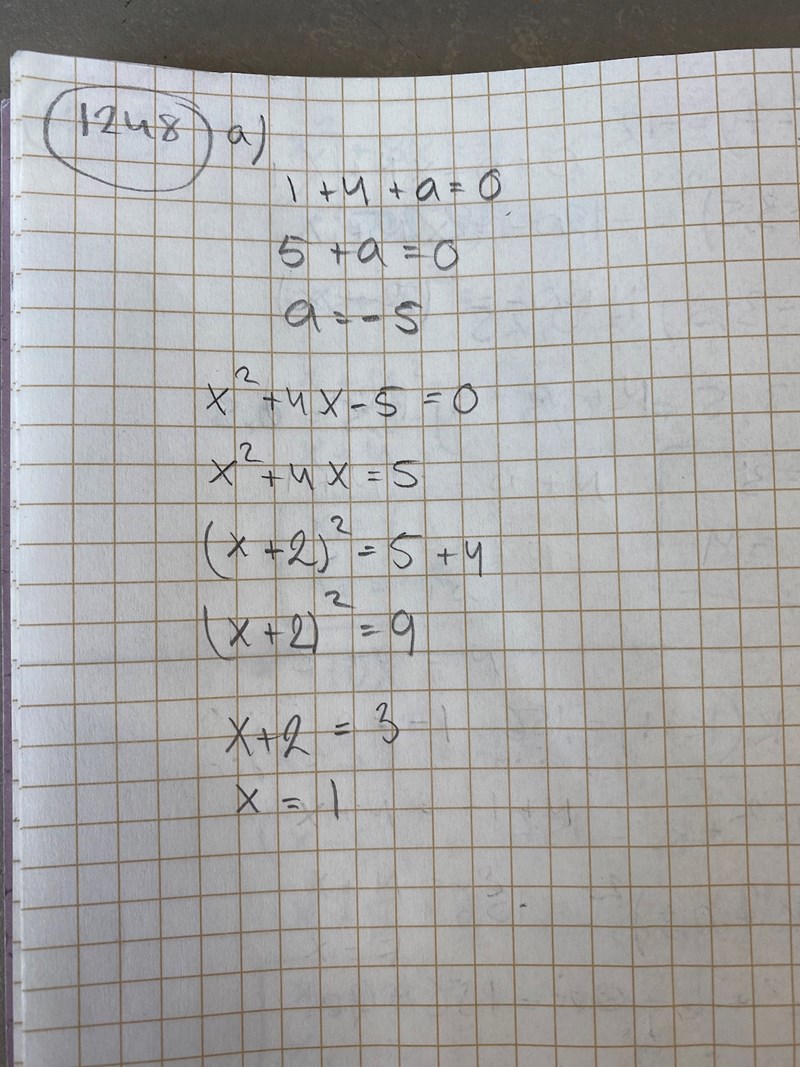 1248 a)
1 + 4 + a = 0
5 + a = 0
a = -5
x² + 4x - 5 = 0
x² + 4x = 5
(x + 2)² = 5 + 4
(x + 2)² = 9
x + 2 = 3
x = 1